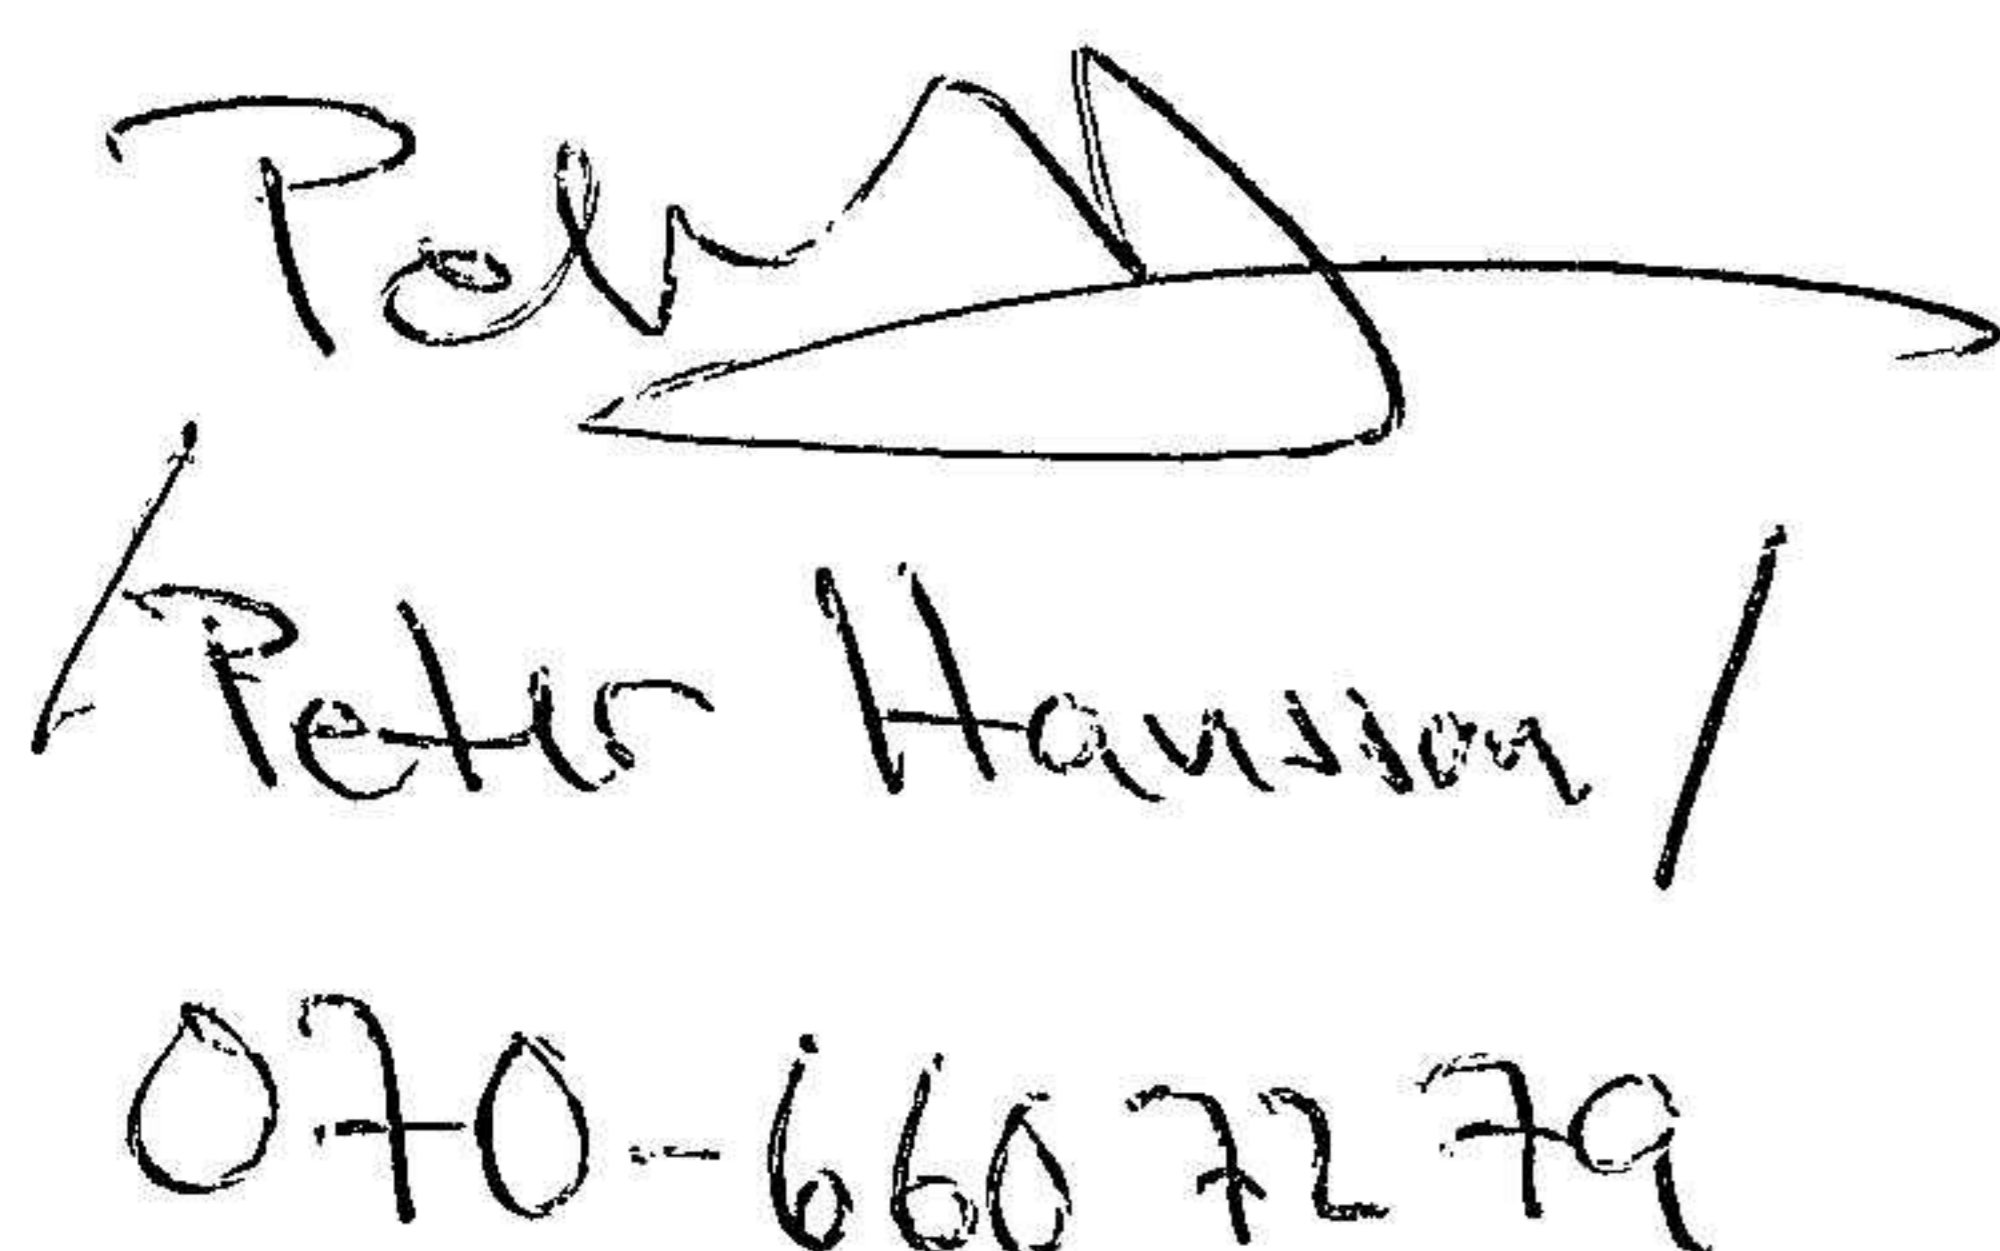 Peter
/Peter Hansson/
070-660 72 79